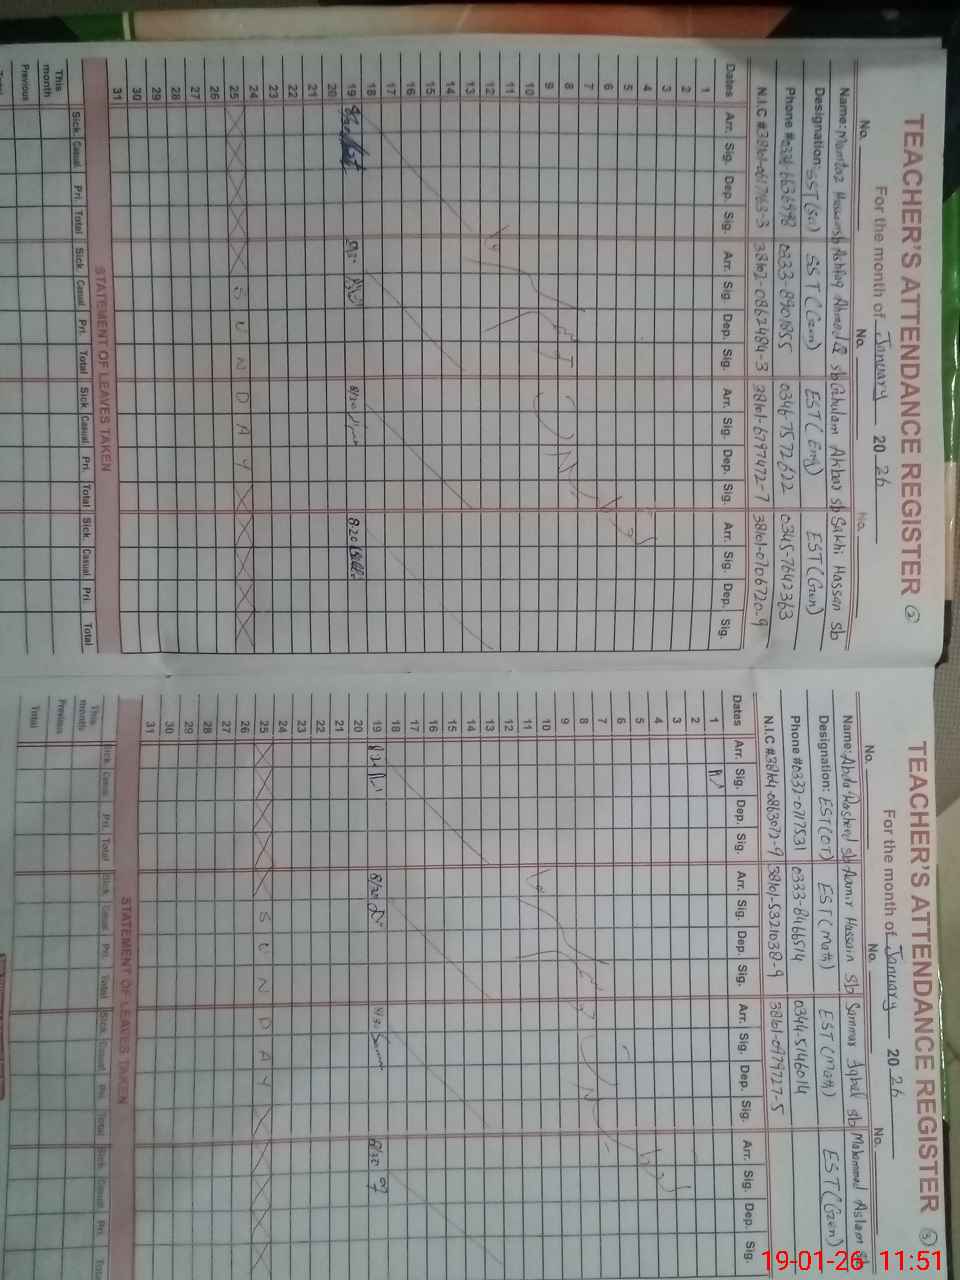 TEACHER'S ATTENDANCE REGISTER 2
For the month of January 2026
No. No. No.
Name: Mumtaz Hussain sb Ashfaq Ahmad sb Ghulam Akbar sb Sakhi Hassan sb
Designation: SST(Sci) SST(Gen) EST(Eng) EST(Gen)
Phone # 0334-6636998 0333-8901855 0346-7572622 0345-7642363
N.I.C # 38101-0617163-3 38102-0862484-3 38101-6797472-7 38101-0706720-9
Dates Arr. Sig. Dep. Sig. Arr. Sig. Dep. Sig. Arr. Sig. Dep. Sig. Arr. Sig. Dep. Sig.
1
2
3
4
5
6
7
8
9
10
11
12
13
14
15
16
17
18
19 8/20 8/20 8:20
20
21
22
23
24
25 SUNDAY
26
27
28
29
30
31
STATEMENT OF LEAVES TAKEN
Sick. Casual Pri. Total Sick. Casual Pri. Total Sick. Casual Pri. Total Sick. Casual Pri. Total
This month
Previous
Total
TEACHER'S ATTENDANCE REGISTER 3
For the month of January 2026
No. No. No.
Name: Abdul Rasheed sb Aamir Hussain sb Sammar Iqbal sb Mohammad Aslam sb
Designation: EST(OT) EST(Math) EST(Math) EST(Gen)
Phone # 0332-0717531 0333-8466514 0344-5146014
N.I.C # 38104-0863072-9 38101-5321038-9 38101-0979727-5
Dates Arr. Sig. Dep. Sig. Arr. Sig. Dep. Sig. Arr. Sig. Dep. Sig. Arr. Sig. Dep. Sig.
1
2
3
4
5
6
7
8
9
10
11
12
13
14
15
16
17
18
19 8/20 8/30 8/30
20
21
22
23
24
25 SUNDAY
26
27
28
29
30
31
STATEMENT OF LEAVES TAKEN
Sick. Casual Pri. Total Sick. Casual Pri. Total Sick. Casual Pri. Total Sick. Casual Pri. Total
This month
Previous
Total
19-01-26 11:51